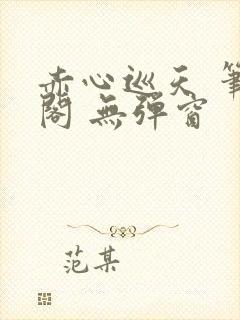 赤心巡天 筆
閣 無彈窗
范某